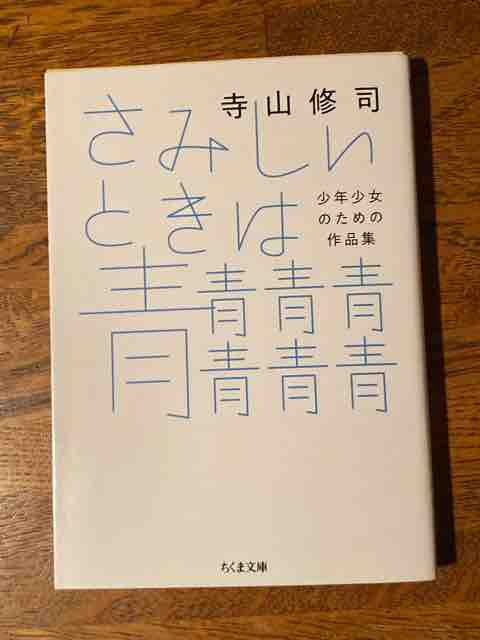 寺山修司
さみしい
ときは
青青青青
青青青
少年少女
のための
作品集
ちくま文庫